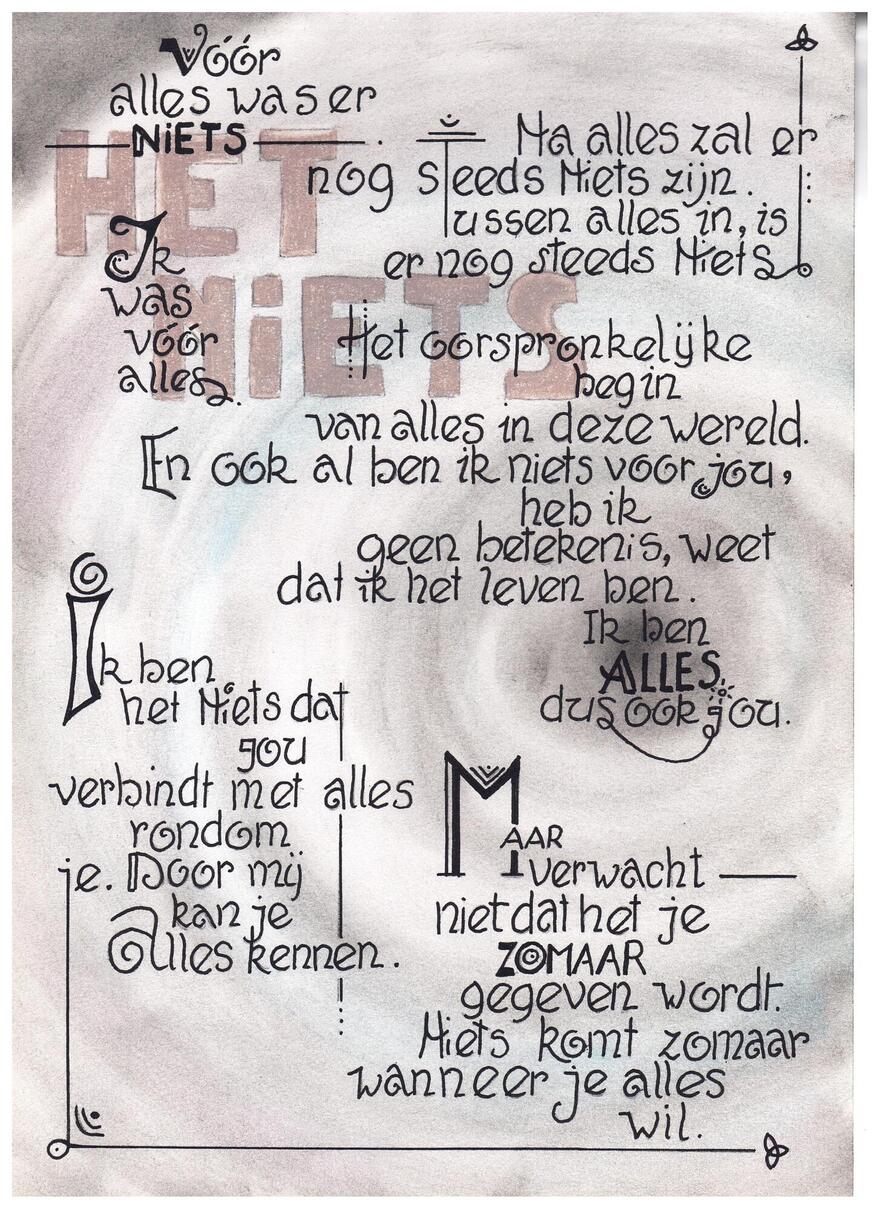 HET
NiETS
Vóór
alles was er
NiETS
Na alles zal er
nog steeds Niets zijn.
Tussen alles in, is
er nog steeds Niets
Ik
was
vóór
alles.
Het oorspronkelijke
begin
van alles in deze wereld.
En ook al ben ik niets voor jou,
heb ik
geen betekenis, weet
dat ik het leven ben.
Ik ben
ALLES
dus ook jou.
Ik ben
het Niets dat
jou
verbindt met alles
rondom
je. Door mij
kan je
Alles kennen.
MAAR
verwacht
niet dat het je
ZOMAAR
gegeven wordt.
Niets komt zomaar
wanneer je alles
wil.